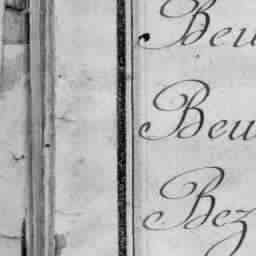 Beu
Beu
Bez